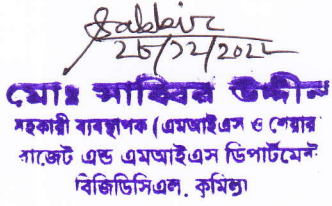 Sabbir
28/12/2022
মোঃ সাব্বির উদ্দীন
সহকারী ব্যবস্থাপক (এমআইএস ও শেয়ার
বাজেট এন্ড এমআইএস ডিপার্টমেন্ট
বিজিডিসিএল, কুমিল্লা